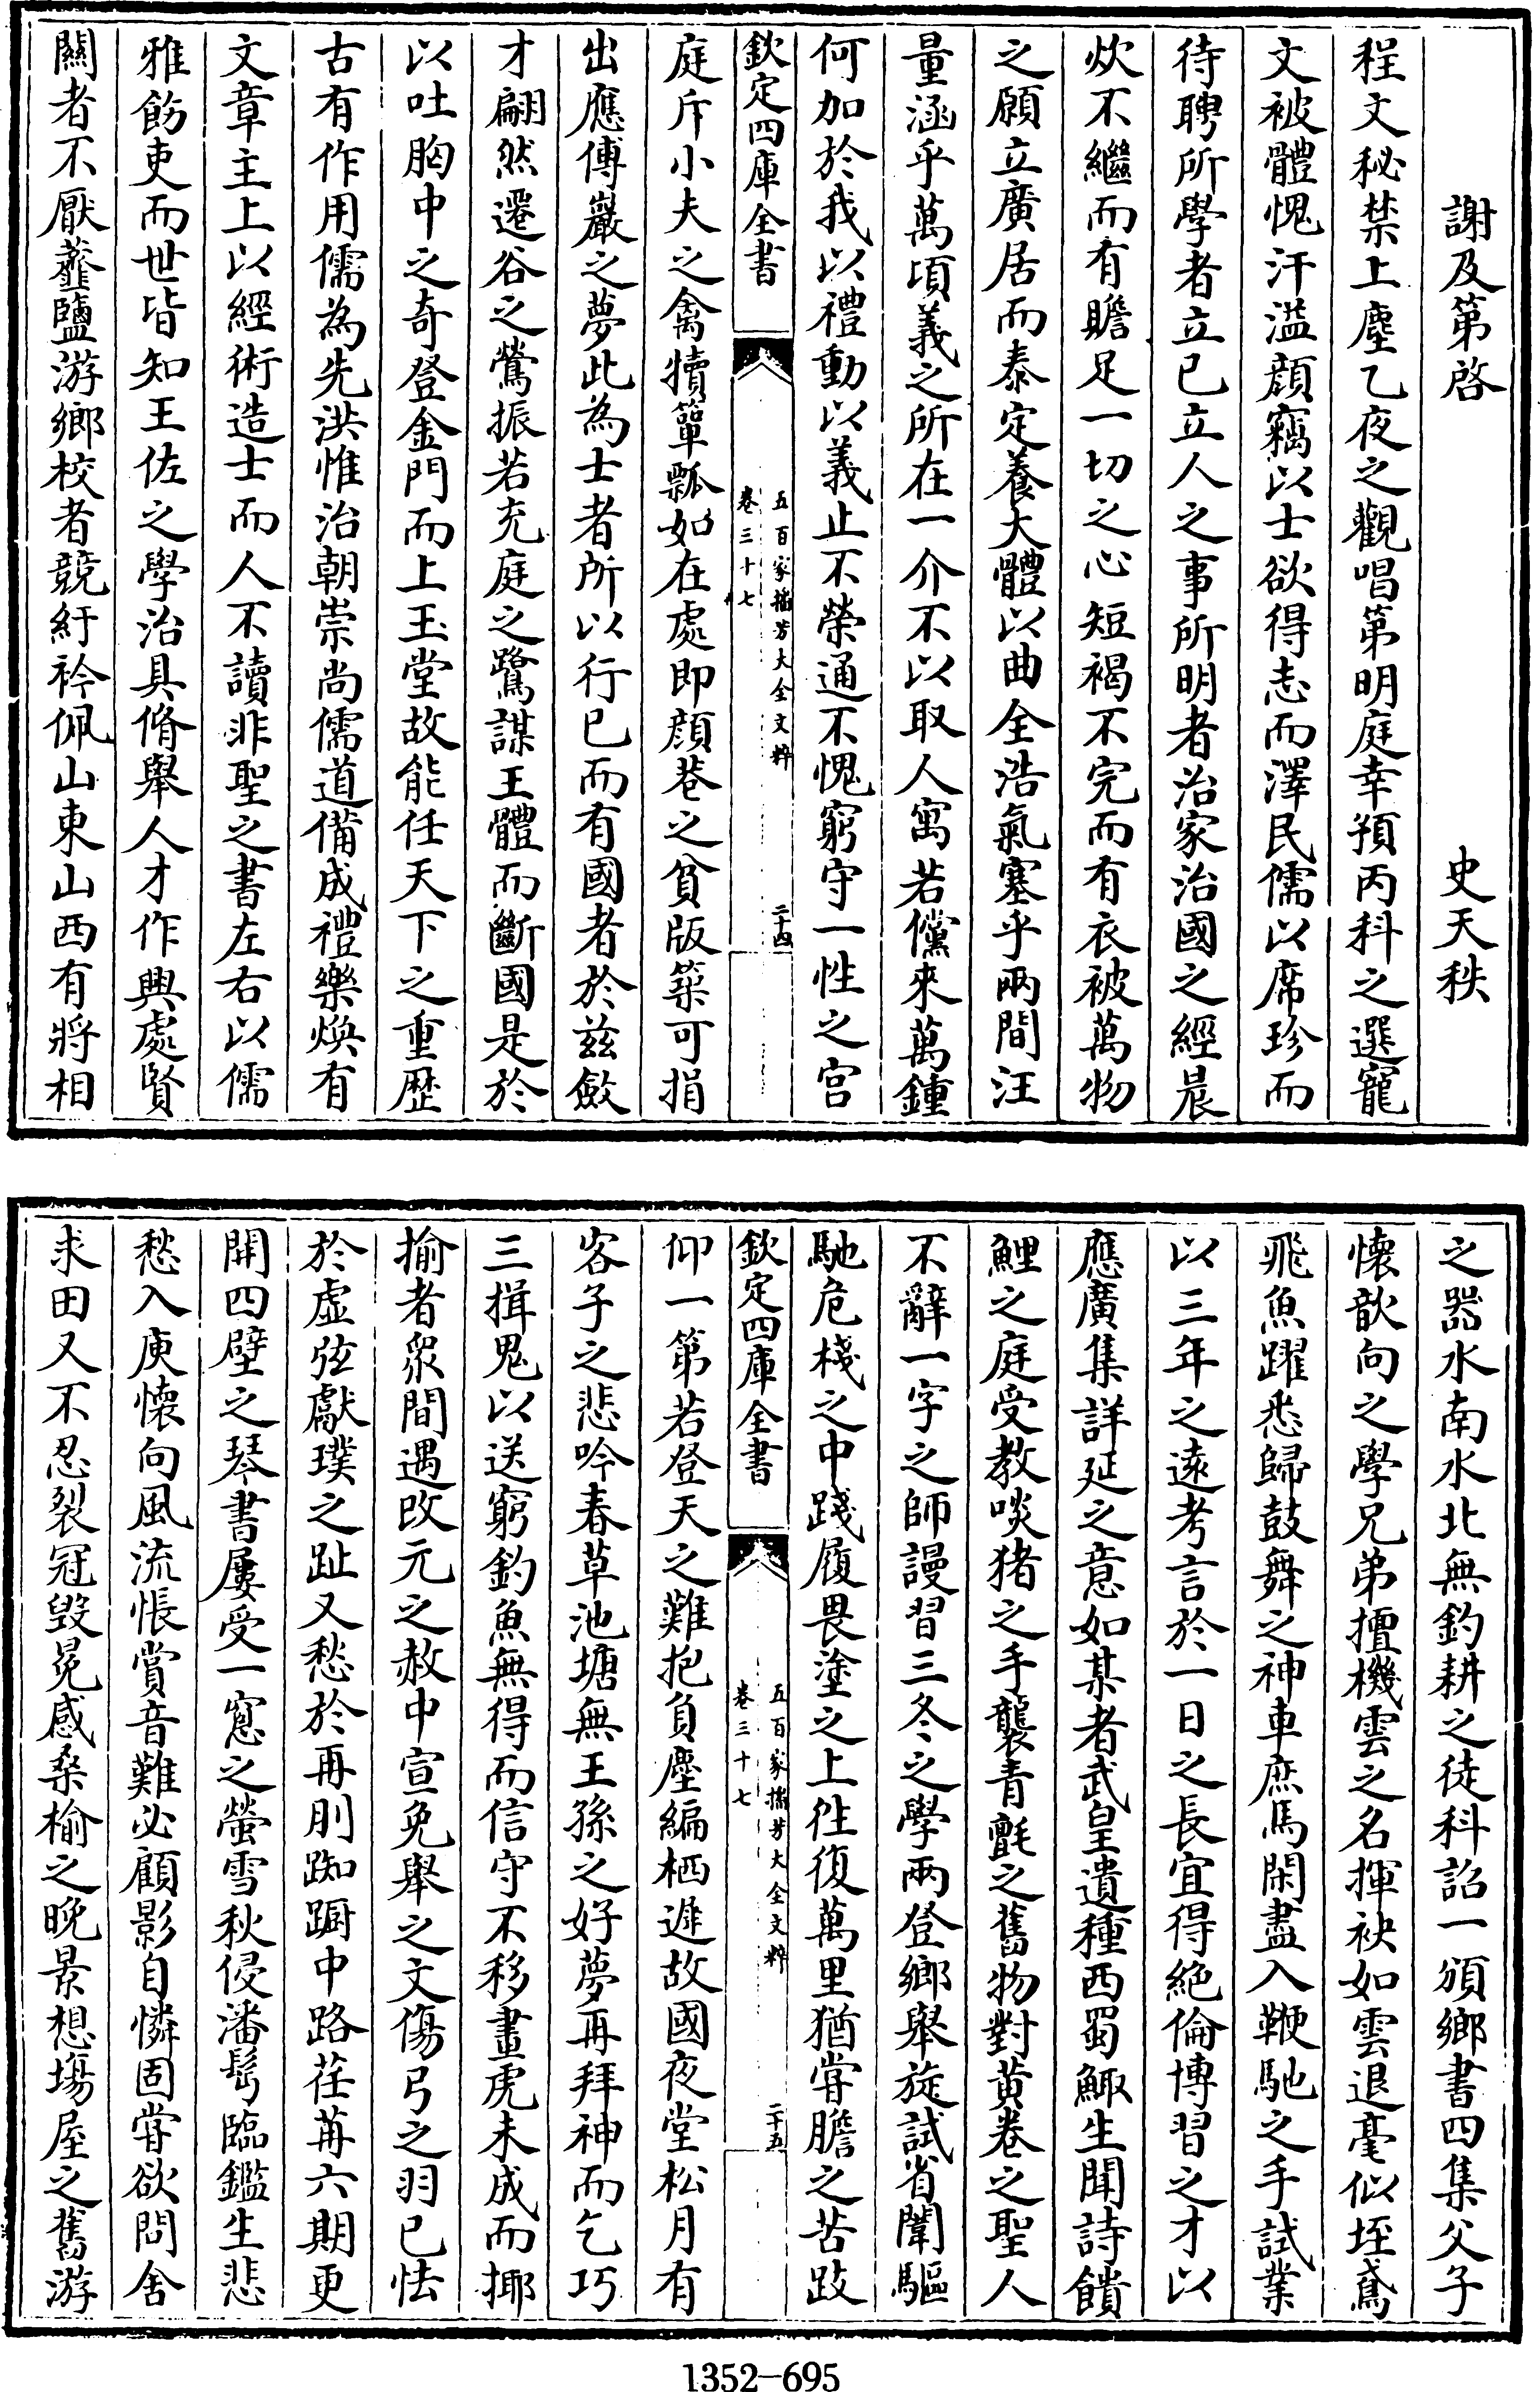 謝及第啓　史天秩
程文秘禁上塵乙夜之觀唱第明庭幸預丙科之選寵
文被體愧汗溢顔竊以士欲得志而澤民儒以席珍而
待聘所學者立已立人之事所明者治家治國之經晨
炊不繼而有贍足一切之心短褐不完而有衣被萬物
之願立廣居而泰定養大體以曲全浩氣塞乎兩間汪
量涵乎萬頃義之所在一介不以取人寓若儻來萬鍾
何加於我以禮動以義止不榮通不愧窮守一性之宫
欽定四庫全書
五百家播芳大全文粹
卷三十七
二十四
庭斥小夫之禽犢簞瓢如在處即顔巷之貧版築可捐
出應傅巖之夢此為士者所以行已而有國者於兹斂
才翩然遷谷之鶯振若充庭之鷺謀王體而斷國是於
以吐胸中之奇登金門而上玉堂故能任天下之重歴
古有作用儒為先洪惟治朝崇尚儒道備成禮樂焕有
文章主上以經術造士而人不讀非聖之書左右以儒
雅飭吏而世皆知王佐之學治具脩舉人才作興處賢
關者不厭虀鹽游鄉校者競紆衿佩山東山西有將相
之器水南水北無釣耕之徒科詔一頒鄉書四集父子
懷歆向之學兄弟擅機雲之名揮袂如雲退毫似垤鳶
飛魚躍悉歸鼓舞之神車庶馬閑盡入鞭馳之手試業
以三年之遠考言於一日之長宜得絶倫博習之才以
應廣集詳延之意如某者武皇遺種西蜀鯫生聞詩饋
鯉之庭受教啖猪之手襲青氈之舊物對黄卷之聖人
不辭一字之師謾習三冬之學兩登鄉舉旋試省闈驅
馳危棧之中踐履畏塗之上往復萬里猶嘗膽之苦跂
欽定四庫全書
五百家播芳大全文粹
卷三十七
二十五
仰一第若登天之難抱負塵編栖遲故國夜堂松月有
客子之悲吟春草池塘無王孫之好夢再拜神而乞巧
三揖鬼以送窮釣魚無得而信守不移畫虎未成而揶
揄者衆間遇改元之赦中宣免舉之文傷弓之羽已怯
於虚弦獻璞之趾又愁於再刖踟蹰中路荏苒六期更
開四壁之琴書屢受一窻之螢雪秋侵潘髩臨鑑生悲
愁入庾懷向風流悵賞音難必顧影自憐固嘗欲問舍
求田又不忍裂冠毁冕感桑榆之晚景想塲屋之舊游
1352-695